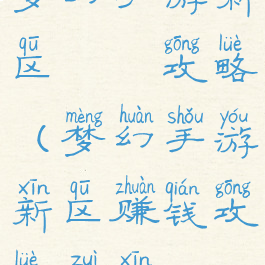 梦幻手游新
qū gōng lüè
区 攻略
mèng huàn shǒu yóu
（梦幻手游
xīn qū zhuàn qián gōng
新区赚钱攻
lüè zuì xīn